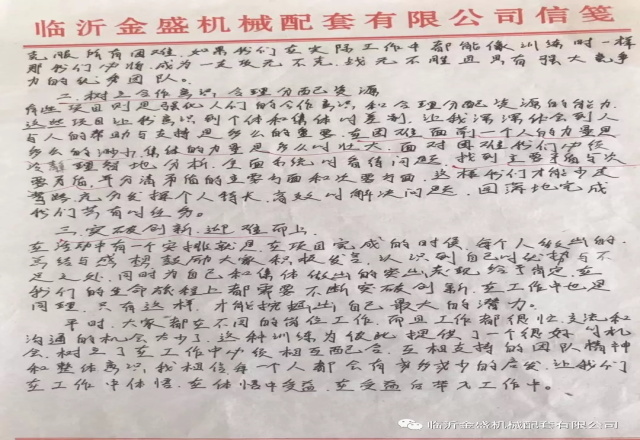 临沂金盛机械配套有限公司信笺
克服所有困难。如果我们在实际工作中都能像训练时一样
那我们必将成为一支攻无不克、战无不胜且具有强大竞争
力的优秀团队。
二、树立合作意识,合理分配资源
有些项目则是强化人们的合作意识和合理分配资源的能力,
这些项目让我意识到个体和集体的差别,让我深深体会到人
与人的帮助与支持是多么的重要,在困难面前一个人的力量是
多么的渺小,集体的力量是多么的壮大,面对困难我们必须
冷静理智地分析,全面系统的看待问题,找到主要矛盾与次
要矛盾,平分清矛盾的主要方面和次要方面,这样我们才能少走
弯路充分发挥个人特长,高效的解决问题,圆满地完成
我们共有的任务。
三、突破创新,迎难而上
在活动中有一个安排就是,在项目完成的时候,每个人做出的
总结与感想鼓励大家积极发言,认识到自己的优势与不
足之处,同时为自己和集体做出的突出表现给予肯定,在
我们的生命旅程上都需要不断突破创新,在工作中也是
同理,只有这样,才能挖掘出自己最大的潜力。
平时,大家都在不同的岗位工作,而且工作都很忙,交流和
沟通的机会太少了,这种训练为彼此提供了一个很好的机
会,树立了在工作中必须相互配合、互相支持的团队精神
和整体意识,我相信每一个人都会有或多或少的启发,让我们
在工作中体悟,在体悟中受益,在受益后带入工作中。
临沂金盛机械配套有限公司